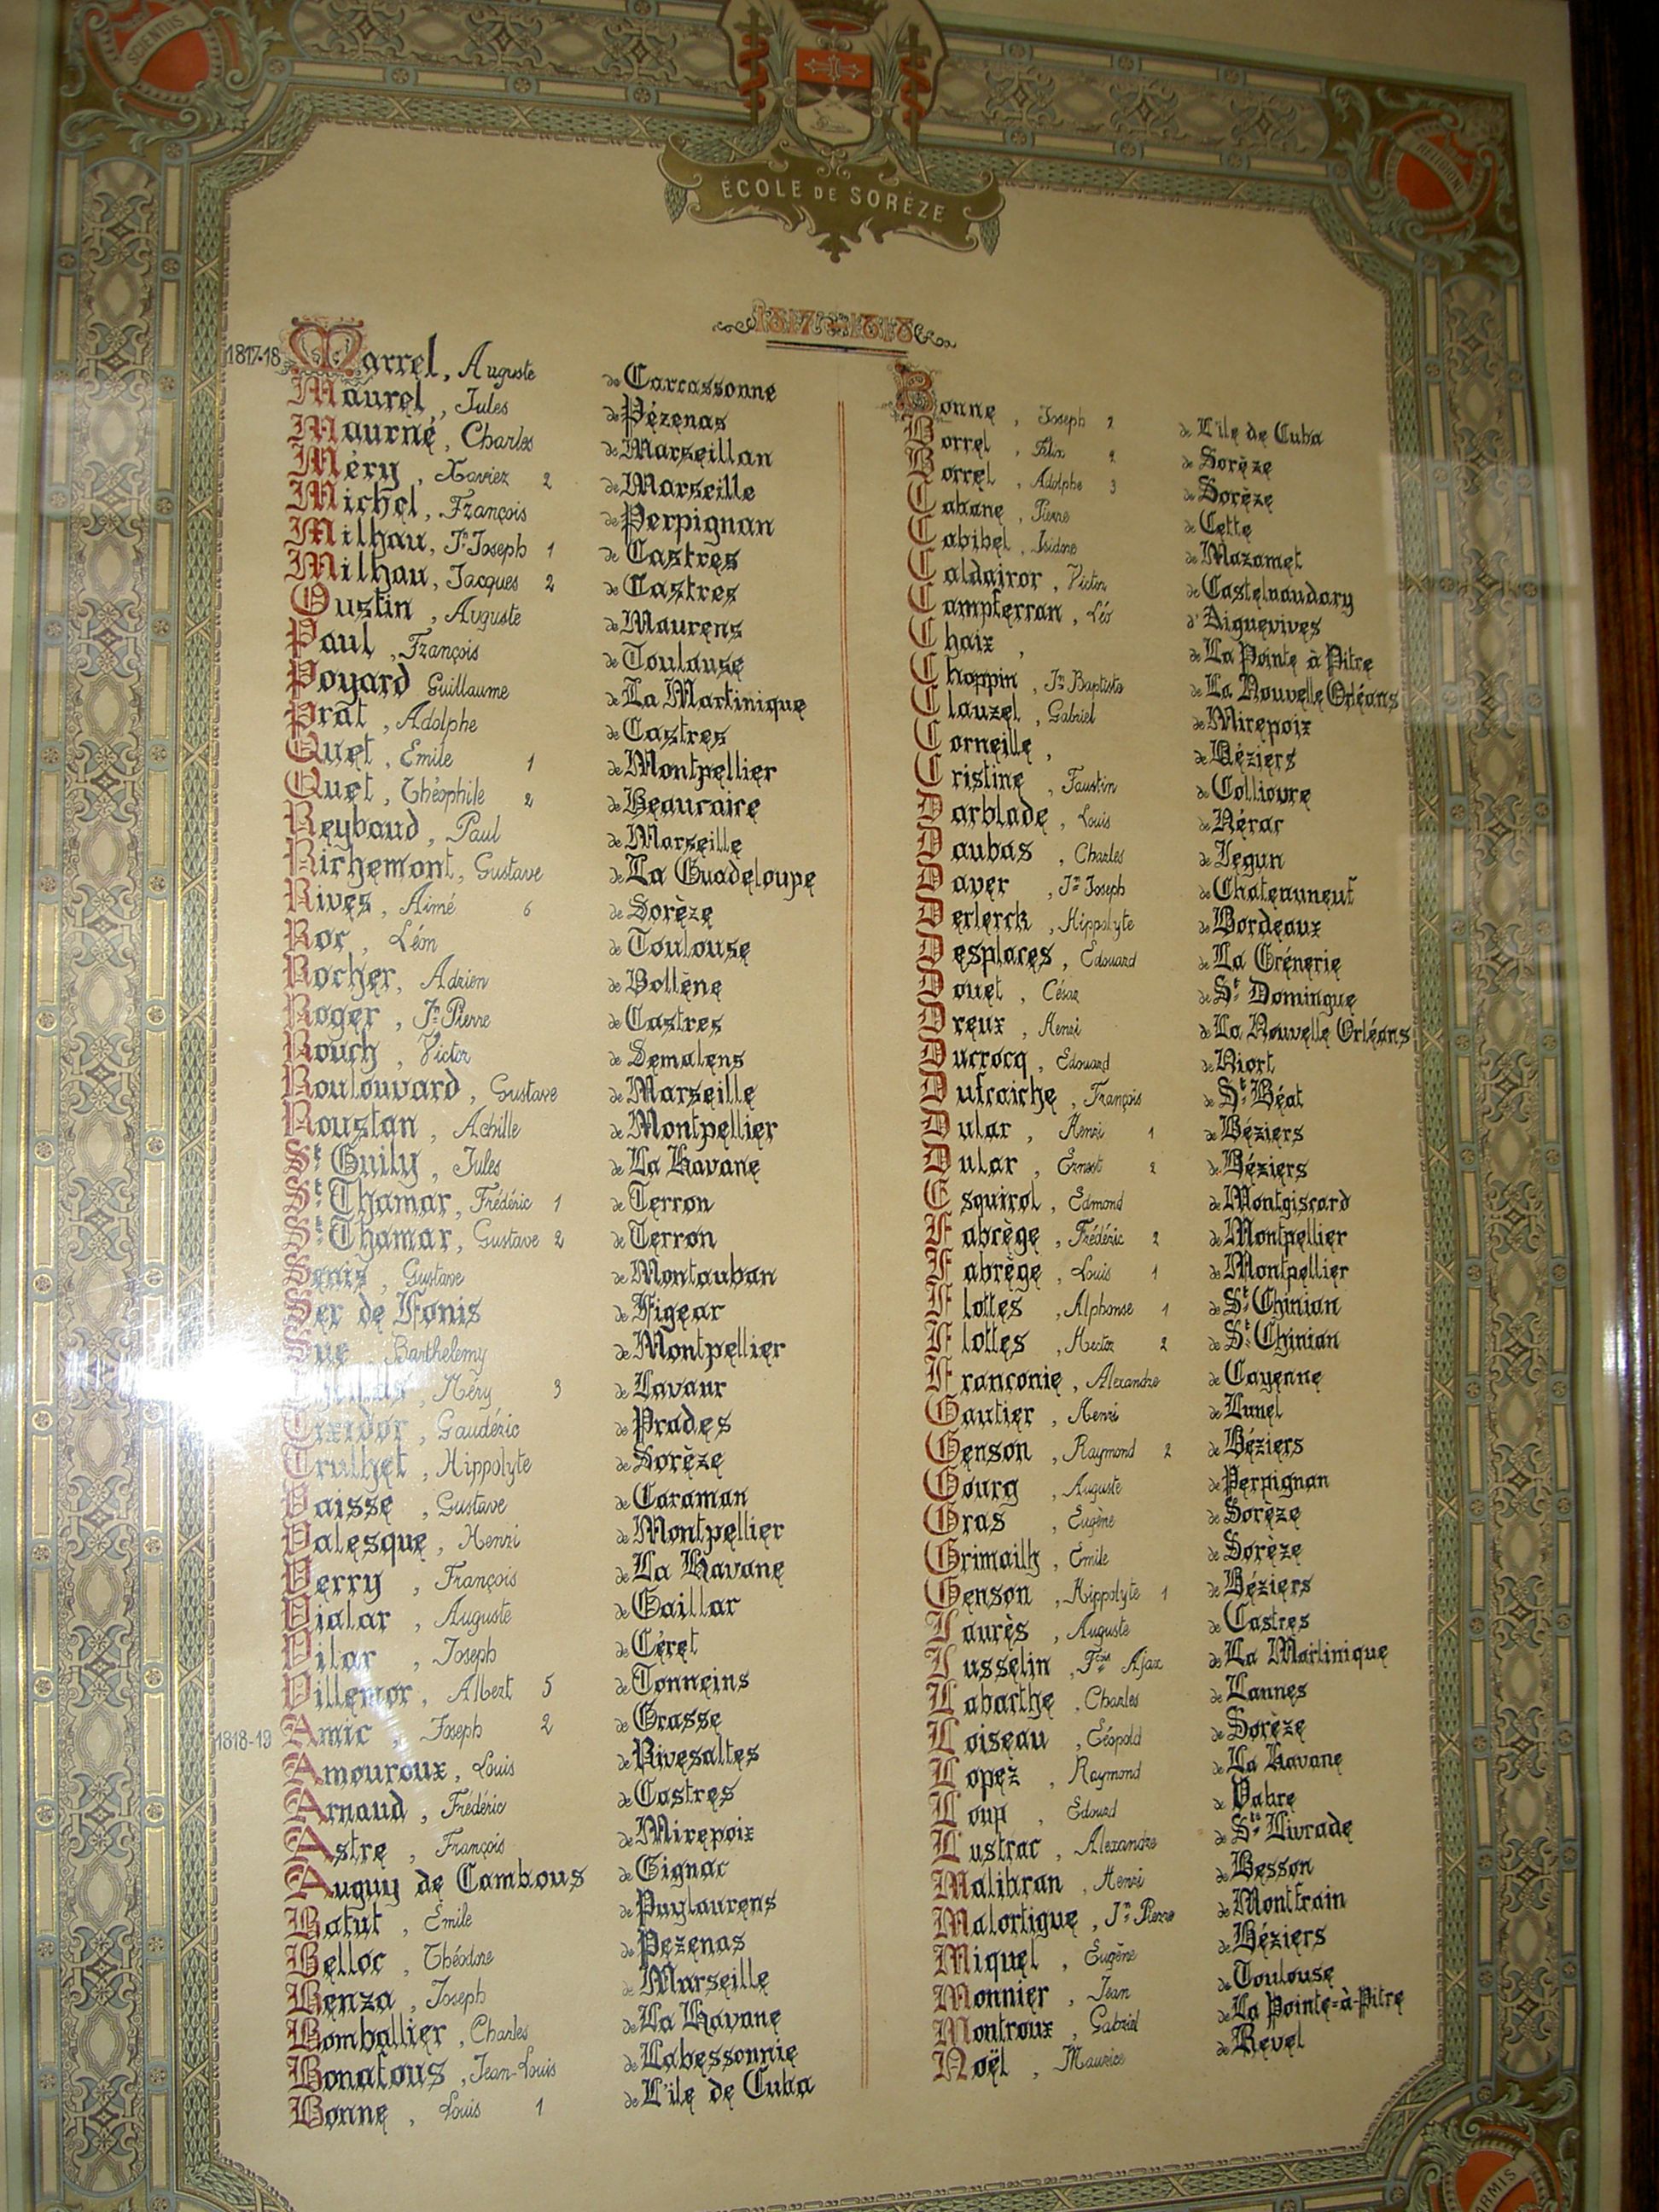 SCIENTIIS
RELIGIONI
ÉCOLE DE SORÈZE
1817-1818
1817-18 Marrel, Auguste de Carcassonne
Maurel, Jules de Pézenas
Maurné, Charles de Marseillan
Méry, Xavier 2 de Marseille
Michel, François de Perpignan
Milhau, Jn Joseph 1 de Castres
Milhau, Jacques 2 de Castres
Oustin, Auguste de Maurens
Paul, François de Toulouse
Poyard Guillaume de La Martinique
Prat, Adolphe de Castres
Quet, Emile 1 de Montpellier
Quet, Théophile 2 de Beaucaire
Reybaud, Paul de Marseille
Richemont, Gustave de La Guadeloupe
Rives, Aimé 6 de Sorèze
Roc, Léon de Toulouse
Rocher, Adrien de Bollène
Roger, Jn Pierre de Castres
Rouch, Victor de Semalens
Boulouvard, Gustave de Marseille
Roustan, Achille de Montpellier
St Guily, Jules de La Havane
St Thamar, Frédéric 1 de Terron
St Thamar, Gustave 2 de Terron
Senis, Gustave de Montauban
Ser de Fonis de Figeac
Sue, Barthelemy de Montpellier
Méry 3 de Lavaur
Tixidor, Gaudéric de Prades
Trulhet, Hippolyte de Sorèze
Vaisse, Gustave de Caraman
Valesque, Henri de Montpellier
Verry, François de La Havane
Vialar, Auguste de Gaillac
Vilar, Joseph de Céret
Villemor, Albert 5 de Tonneins
1818-19 Amic, Joseph 2 de Grasse
Amouroux, Louis de Rivesaltes
Arnaud, Frédéric de Castres
Astre, François de Mirepoix
Auguy de Cambous de Gignac
Batut, Émile de Puylaurens
Belloc, Théodore de Pezenas
Benza, Joseph de Marseille
Bomballier, Charles de La Havane
Bonafous, Jean-Louis de Labessonnie
Bonne, Louis 1 de L'île de Cuba
Bonne, Joseph 2 de L'île de Cuba
Borrel, Félix 2 de Sorèze
Borrel, Adolphe 3 de Sorèze
Cabane, Pierre de Cette
Cabibel, Isidore de Mazamet
Caldairor, Victor de Castelnaudary
Campferran, Léo d'Aiguevives
Chaix, de La Pointe à Pitre
Choppin, Jn Baptiste de La Nouvelle Orléans
Clauzel, Gabriel de Mirepoix
Corneille, de Béziers
Cristine, Faustin de Collioure
Darblade, Louis de Nérac
Daubas, Charles de Jegun
Daver, Jn Joseph de Chateauneuf
Derlerck, Hippolyte de Bordeaux
Desplaces, Edouard de La Grénerie
Douet, César de St Domingue
Dreux, Henri de La Nouvelle Orléans
Ducrocq, Edouard de Niort
Dufraiche, François de St Béat
Dular, Henri 1 de Béziers
Dular, Ernest 2 de Béziers
Esquirol, Edmond de Montgiscard
Fabrège, Frédéric 2 de Montpellier
Fabrège, Louis 1 de Montpellier
Flottes, Alphonse 1 de St Chinian
Flottes, Hector 2 de St Chinian
Franconie, Alexandre de Cayenne
Gautier, Henri de Lunel
Genson, Raymond 2 de Béziers
Gourg, Auguste de Perpignan
Gras, Eugène de Sorèze
Grimailh, Emile de Sorèze
Genson, Hippolyte 1 de Béziers
Jaurès, Auguste de Castres
Jusselin, Fçois Ajax de La Martinique
Labarthe, Charles de Lannes
Loiseau, Léopold de Sorèze
Lopez, Raymond de La Havane
Loup, Edouard de Vabre
Lustrac, Alexandre de Ste Livrade
Malibran, Henri de Besson
Malortigue, Jn Pierre de Montfrain
Miquel, Eugène de Béziers
Monnier, Jean de Toulouse
Montroux, Gabriel de La Pointe-à-Pitre
Noël, Maurice de Revel